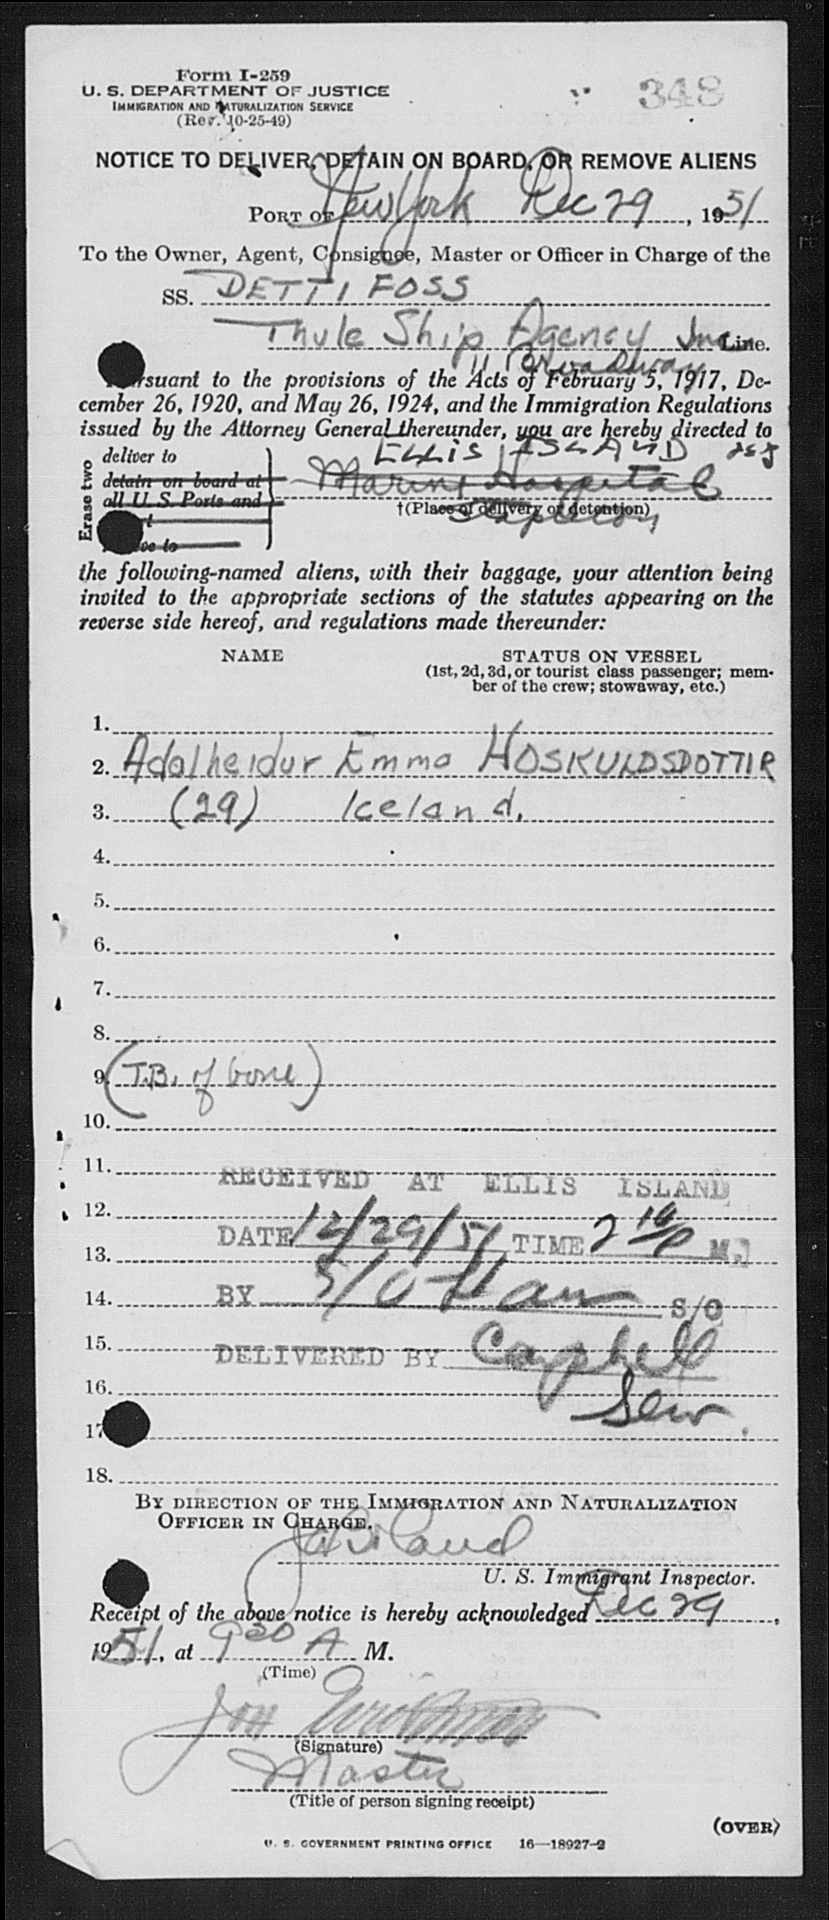 Form I-259
U. S. DEPARTMENT OF JUSTICE
IMMIGRATION AND NATURALIZATION SERVICE
(Rev. 10-25-49)
348
NOTICE TO DELIVER, DETAIN ON BOARD, OR REMOVE ALIENS
PORT OF New York Dec 29, 1951
To the Owner, Agent, Consignee, Master or Officer in Charge of the
SS. DETTIFOSS
Thule Ship Agency Inc Line.
11 Broadway
Pursuant to the provisions of the Acts of February 5, 1917, De-
cember 26, 1920, and May 26, 1924, and the Immigration Regulations
issued by the Attorney General thereunder, you are hereby directed to
ELLIS ISLAND
Erase two
deliver to
detain on board at
all U. S. Ports and
Marine Hospital
†(Place of delivery or detention)
Stapleton
the following-named aliens, with their baggage, your attention being
invited to the appropriate sections of the statutes appearing on the
reverse side hereof, and regulations made thereunder:
NAME STATUS ON VESSEL
(1st, 2d, 3d, or tourist class passenger; mem-
ber of the crew; stowaway, etc.)
1.
2. Adalheidur Emma HOSKULDSDOTTIR
3. (29) Iceland.
4.
5.
6.
7.
8.
9. (T.B. of bone)
10.
11. RECEIVED AT ELLIS ISLAND
12.
DATE 12/29/51 TIME 2 10 P M.
13.
14. BY S/O S/O
15. DELIVERED BY Campbell
16.
17.
18.
BY DIRECTION OF THE IMMIGRATION AND NATURALIZATION
OFFICER IN CHARGE.
U. S. Immigrant Inspector.
Receipt of the above notice is hereby acknowledged Dec 29,
1951, at 9 30 A M.
(Time)
Jon
(Signature)
Master
(Title of person signing receipt)
(OVER)
U. S. GOVERNMENT PRINTING OFFICE 16—18927-2